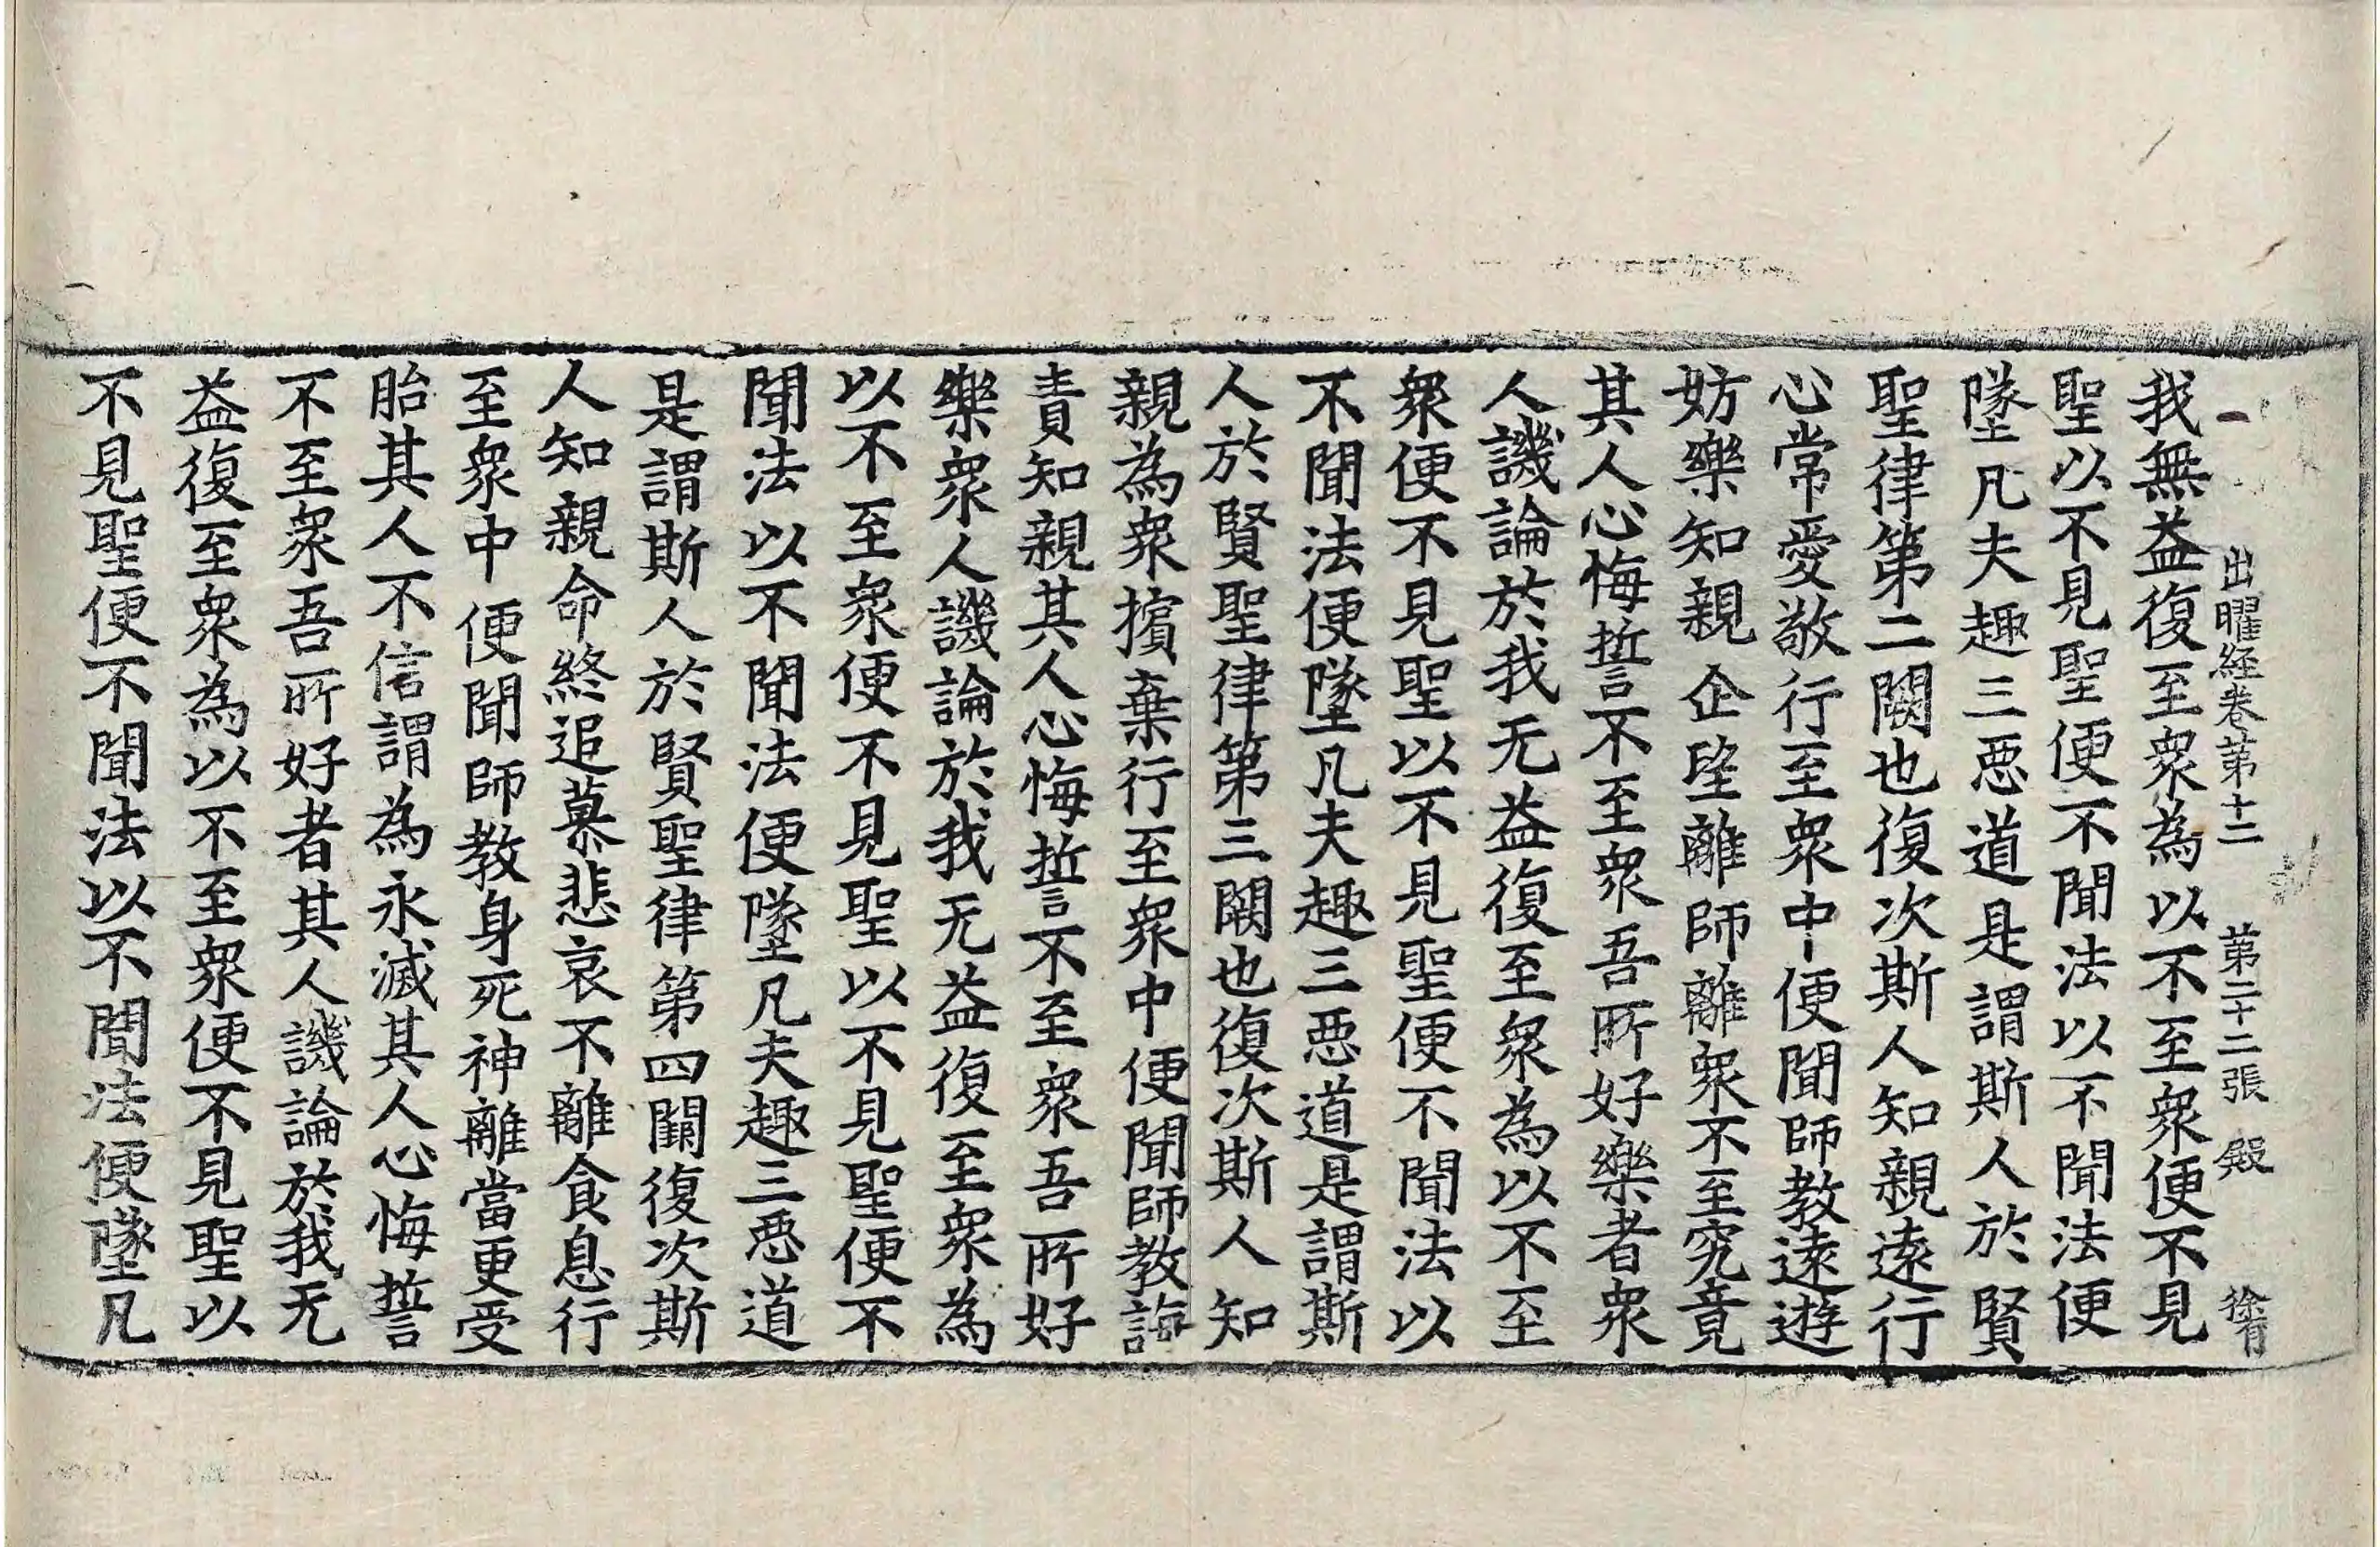 出曜経卷第十二 第二十二張 殿 徐有
我無益復至衆為以不至衆便不見
聖以不見聖便不聞法以不聞法便
墜凡夫趣三惡道是謂斯人於賢
聖律第二闕也復次斯人知親遠行
心常愛敬行至衆中便聞師教遠遊
妨樂知親企望離師離衆不至究竟
其人心悔誓不至衆吾所好樂者衆
人譏論於我无益復至衆為以不至
衆便不見聖以不見聖便不聞法以
不聞法便墜凡夫趣三惡道是謂斯
人於賢聖律第三闕也復次斯人知
親為衆擯棄行至衆中便聞師教誨
責知親其人心悔誓不至衆吾所好
樂衆人譏論於我无益復至衆為
以不至衆便不見聖以不見聖便不
聞法以不聞法便墜凡夫趣三惡道
是謂斯人於賢聖律第四闕復次斯
人知親命終追慕悲哀不離食息行
至衆中便聞師教身死神離當更受
胎其人不信謂為永滅其人心悔誓
不至衆吾所好者其人譏論於我无
益復至衆為以不至衆便不見聖以
不見聖便不聞法以不聞法便墜凡